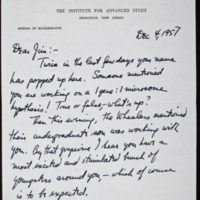 THE INSTITUTE FOR ADVANCED STUDY
PRINCETON, NEW JERSEY
SCHOOL OF MATHEMATICS
Dec 4, 1957
Dear Jim:-
Twice in the last few days your name
has popped up here. Someone mentioned
you are working on a gene: 1 microsome
hypothesis! True or false - what's up?
Then this evening, the Wheelers mentioned
their undergraduate son was working with
you. By that grapevine I hear you have a
most excited and stimulated bunch of
youngsters around you - which of course
is to be expected.